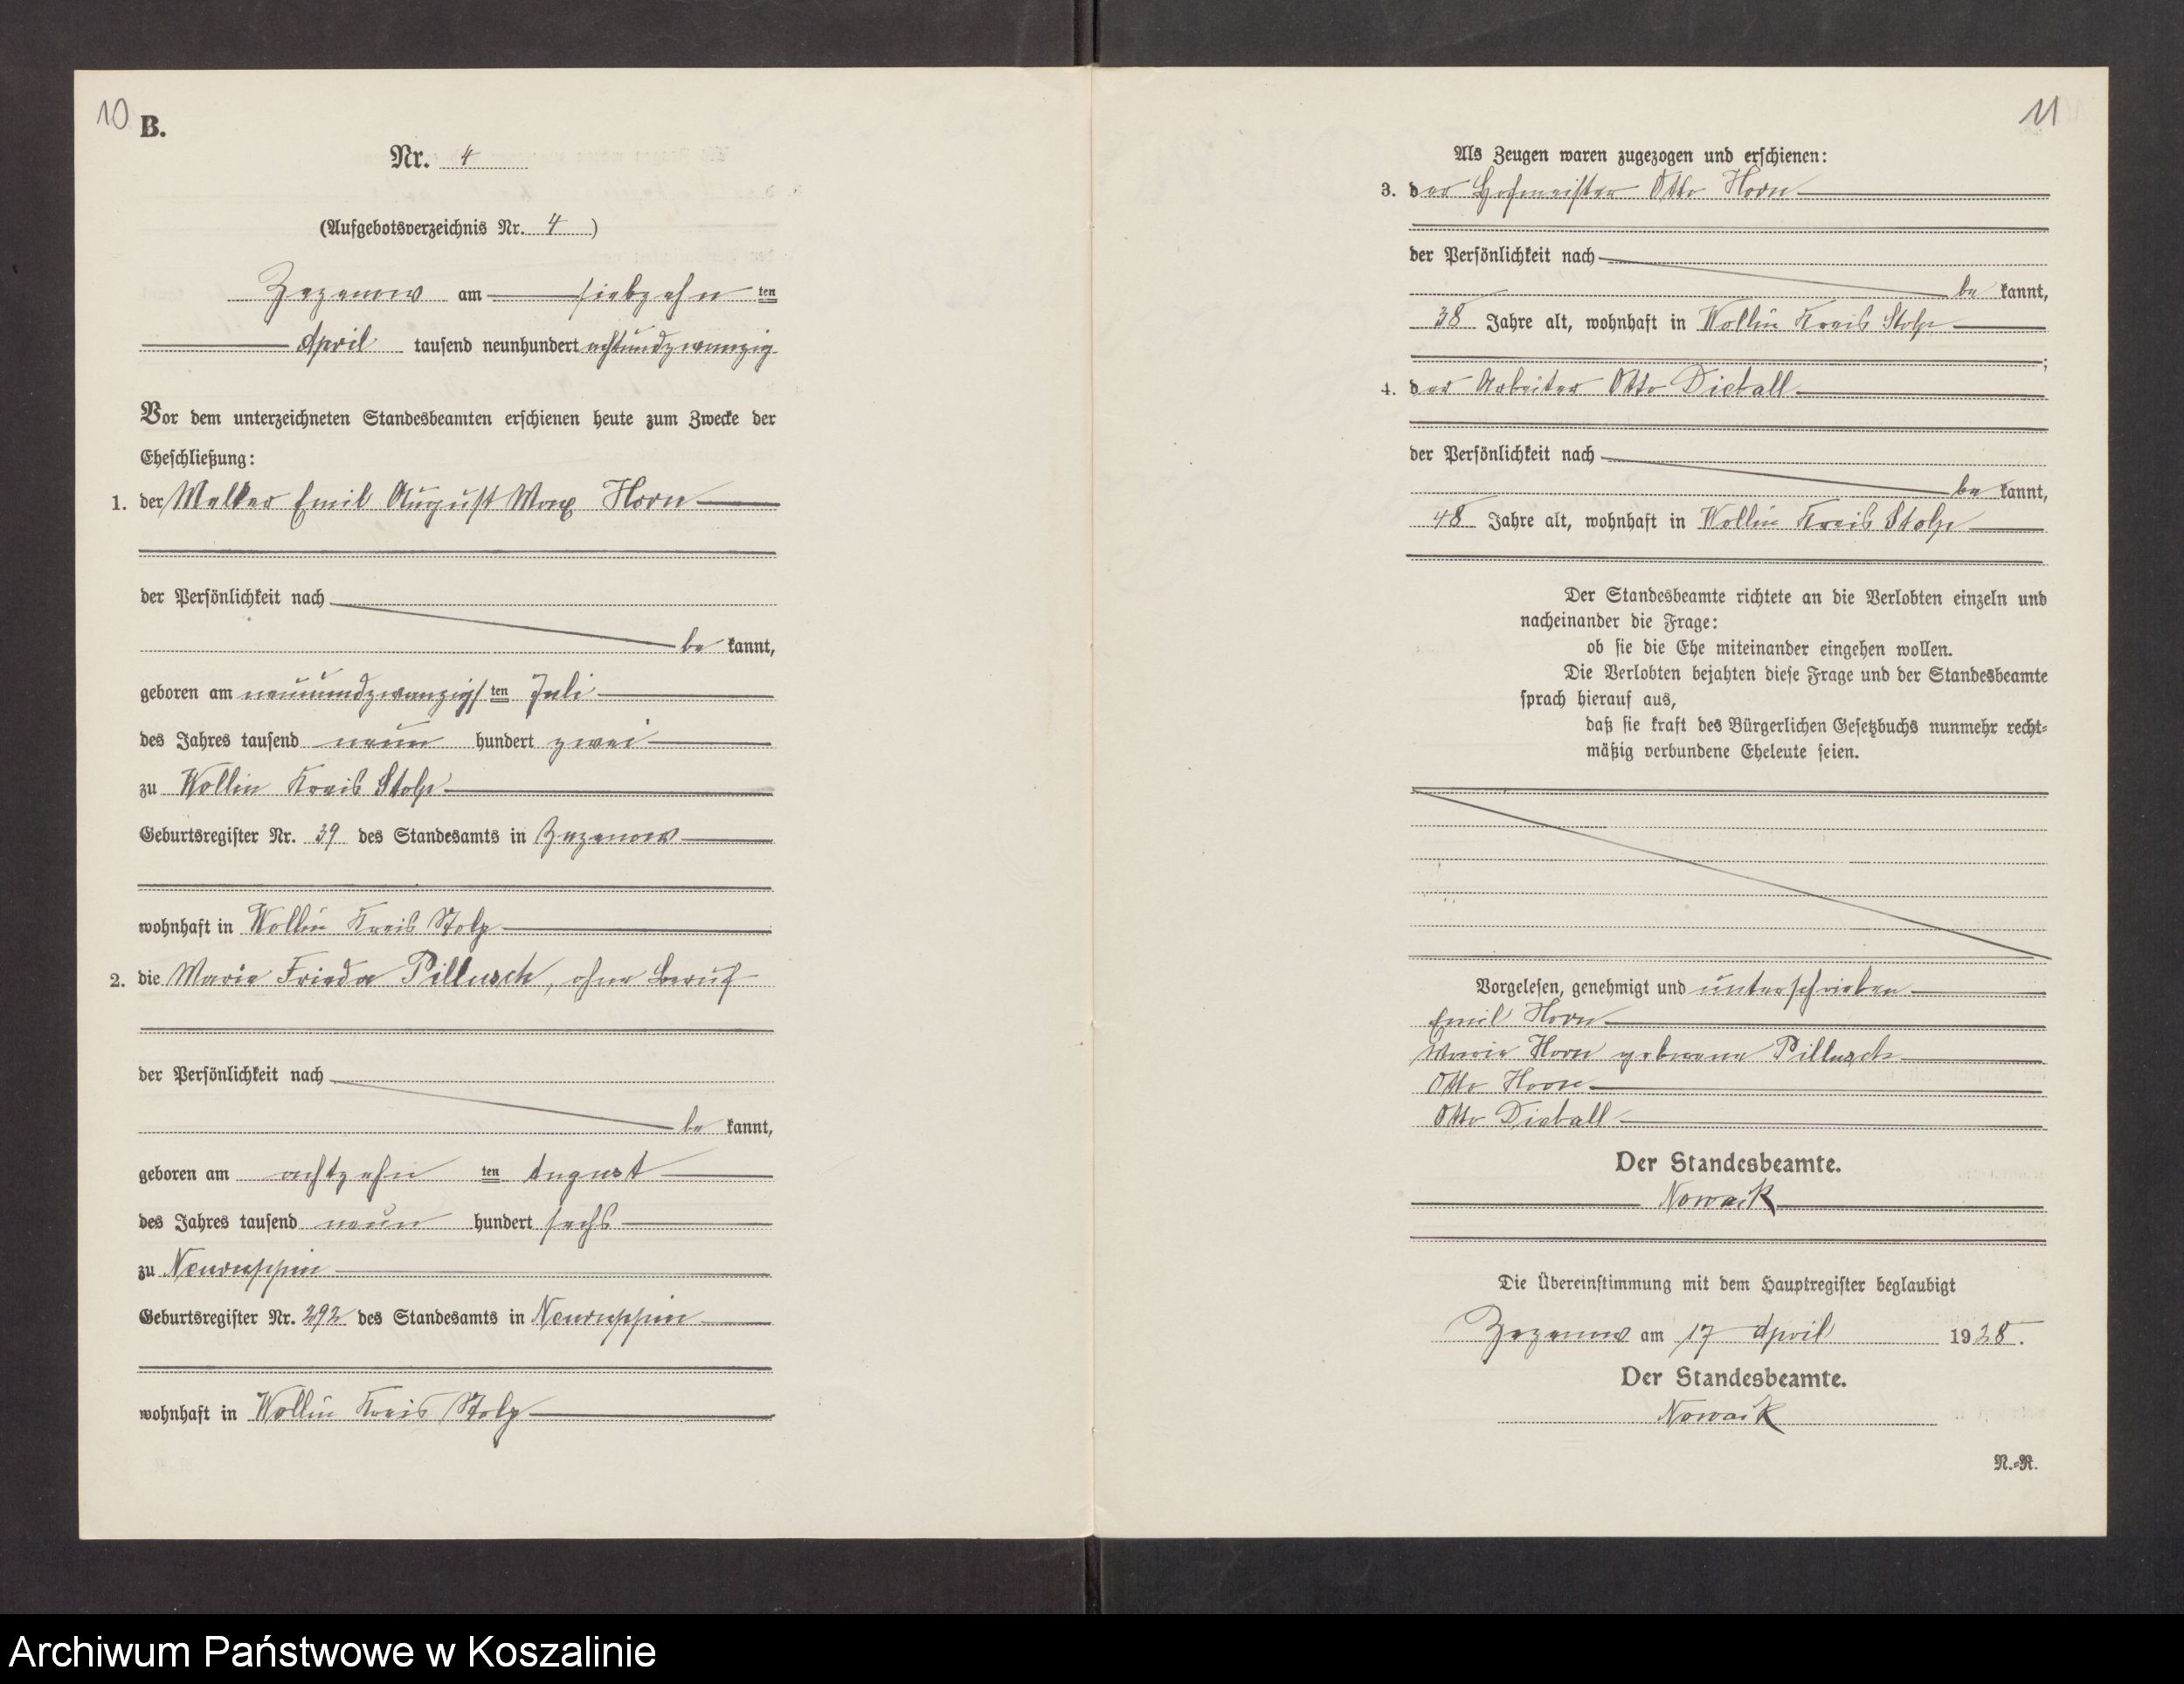 10
B.
Nr. 4
(Aufgebotsverzeichnis Nr. 4)
Zezenow am siebzehn ten
April tausend neunhundert achtundzwanzig
Vor dem unterzeichneten Standesbeamten erschienen heute zum Zwecke der
Eheschließung:
1. der Melker Emil August Max Horn
der Persönlichkeit nach
be kannt,
geboren am neunundzwanzigs ten Juli
des Jahres tausend neun hundert zwei
zu Wollin Kreis Stolp
Geburtsregister Nr. 39 des Standesamts in Zezenow
wohnhaft in Wollin Kreis Stolp
2. die Marie Frieda Pillusch, ohne Beruf
der Persönlichkeit nach
be kannt,
geboren am achtzehn ten August
des Jahres tausend neun hundert sechs
zu Neuruppin
Geburtsregister Nr. 292 des Standesamts in Neuruppin
wohnhaft in Wollin Kreis Stolp
11
Als Zeugen waren zugezogen und erschienen:
3. der Hofmeister Otto Horn
der Persönlichkeit nach
be kannt,
38 Jahre alt, wohnhaft in Wollin Kreis Stolp
;
4. der Arbeiter Otto Dieball
der Persönlichkeit nach
be kannt,
48 Jahre alt, wohnhaft in Wollin Kreis Stolp
Der Standesbeamte richtete an die Verlobten einzeln und
nacheinander die Frage:
ob sie die Ehe miteinander eingehen wollen.
Die Verlobten bejahten diese Frage und der Standesbeamte
sprach hierauf aus,
daß sie kraft des Bürgerlichen Gesetzbuchs nunmehr recht-
mäßig verbundene Eheleute seien.
Vorgelesen, genehmigt und unterschrieben
Emil Horn
Marie Horn geborene Pillusch
Otto Horn
Otto Dieball
Der Standesbeamte.
Nowack
Die Übereinstimmung mit dem Hauptregister beglaubigt
Zezenow am 17 April 1928.
Der Standesbeamte.
Nowack
N.-R.
Archiwum Państwowe w Koszalinie